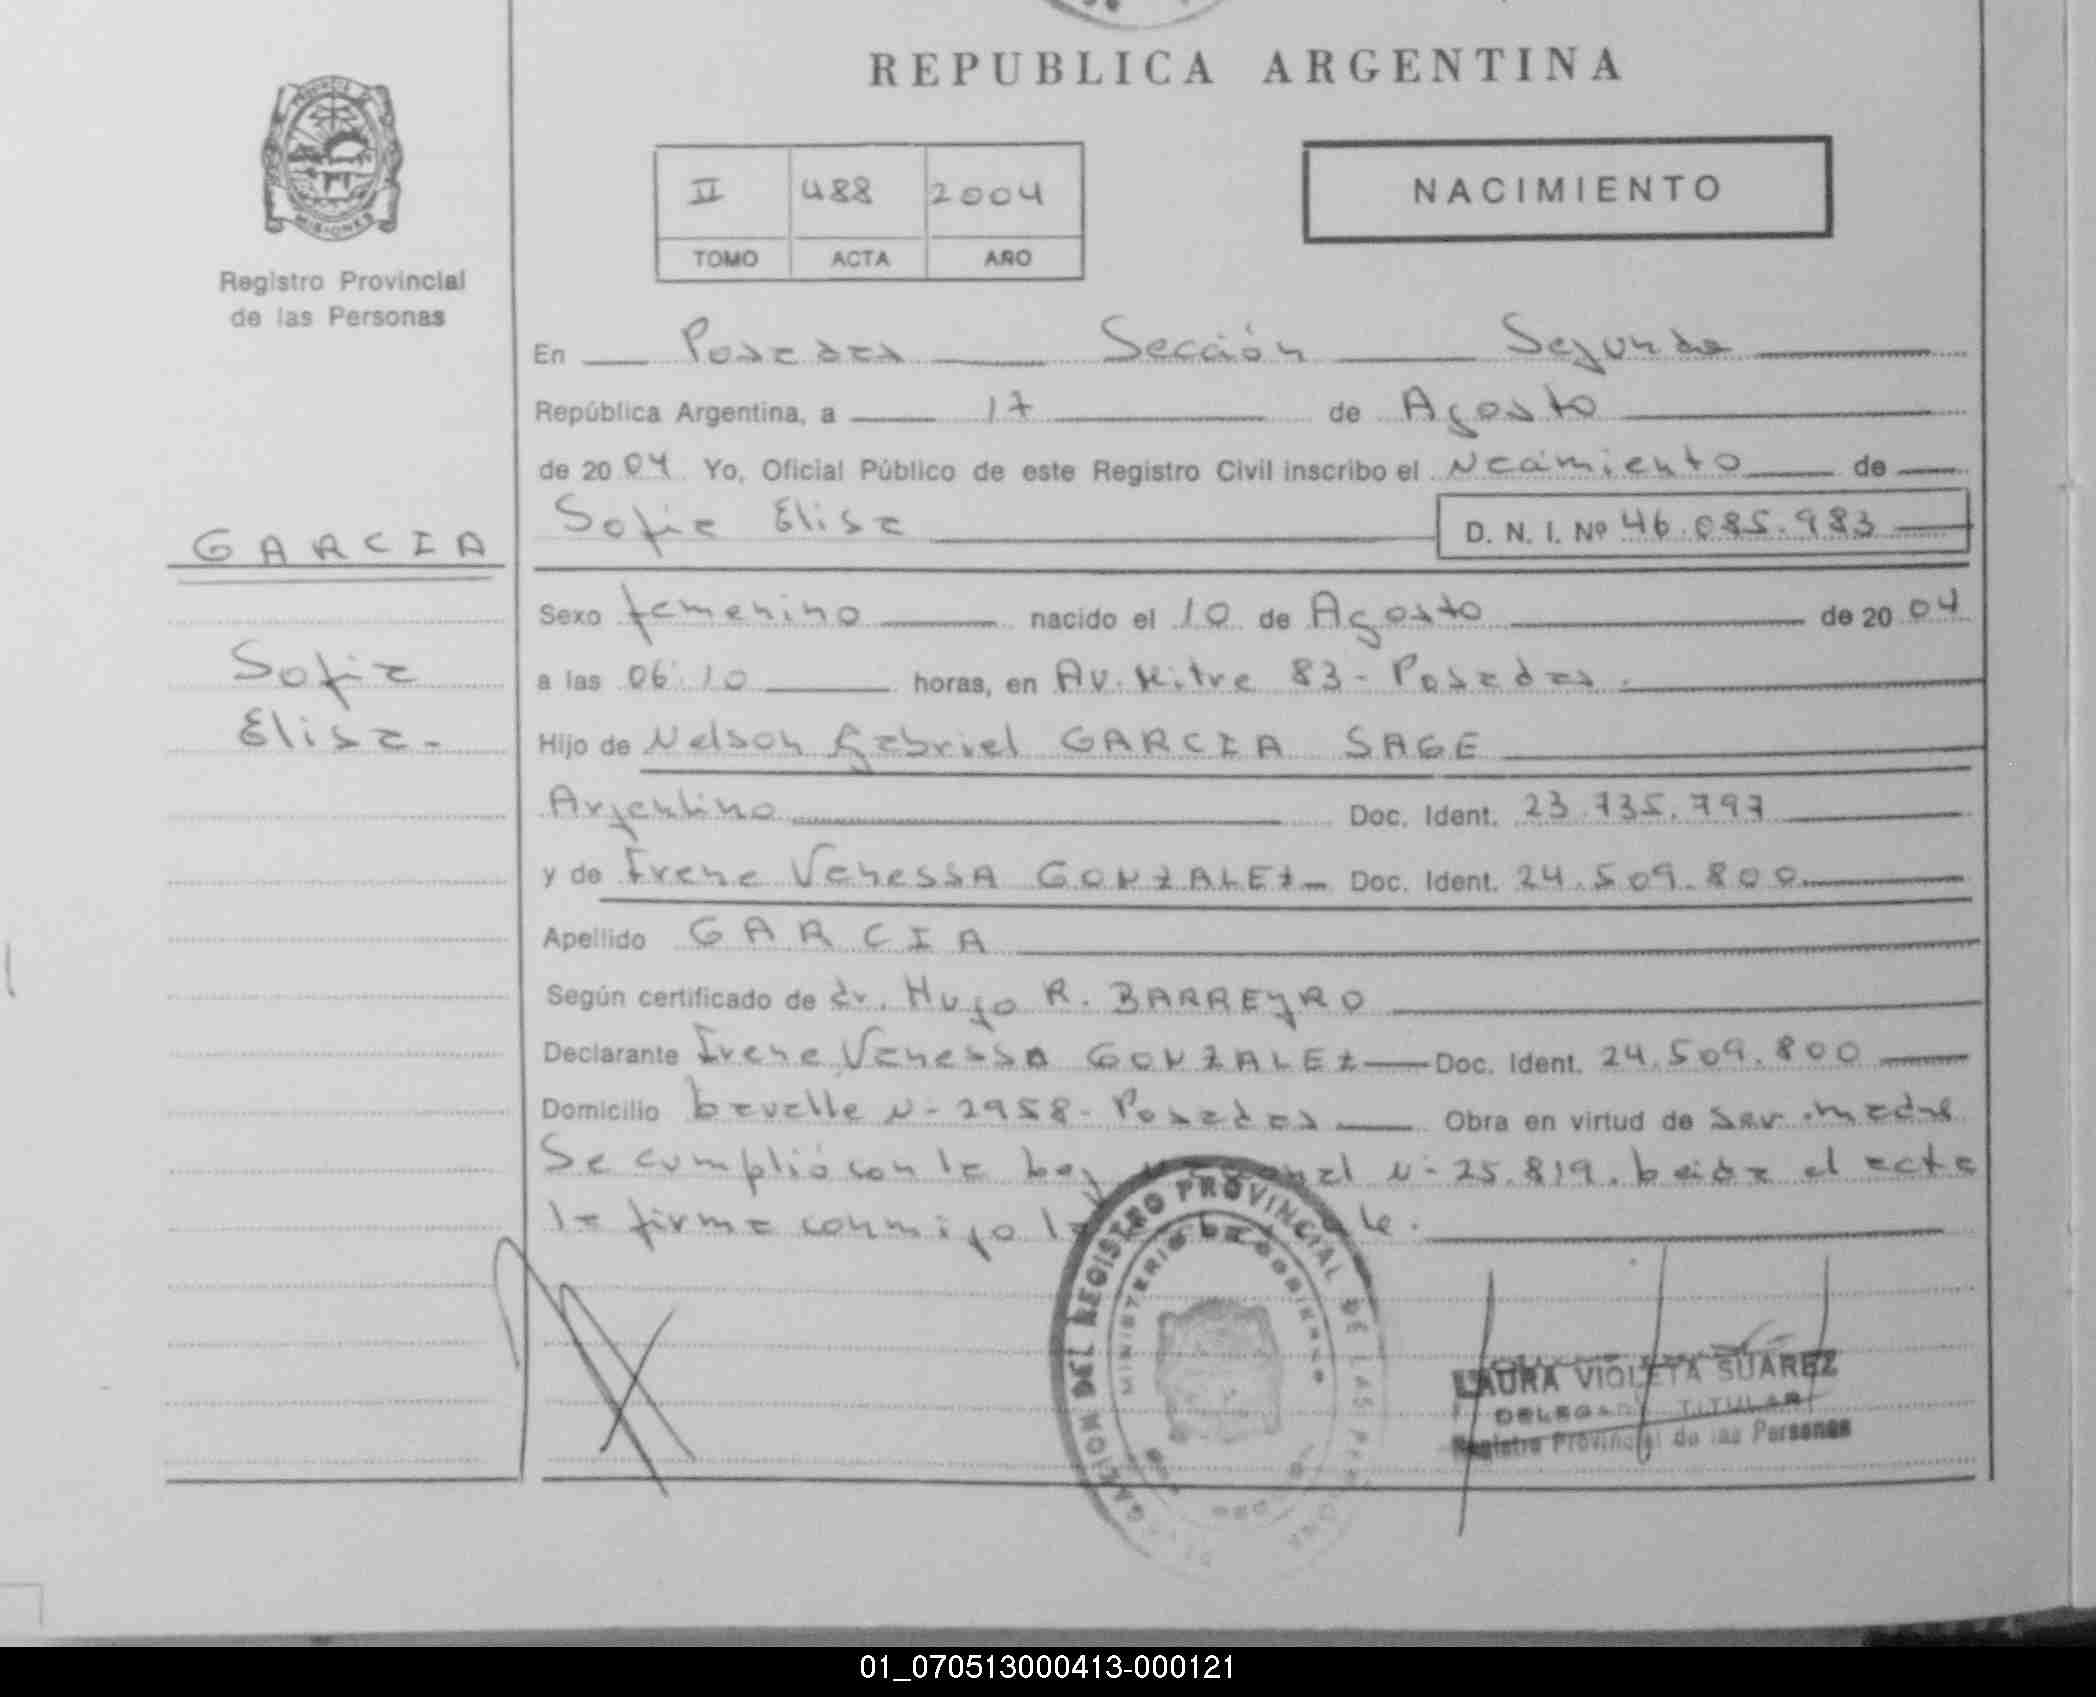 REPUBLICA ARGENTINA
MISIONES
Registro Provincial
de las Personas
II 488 2004
TOMO ACTA AÑO
NACIMIENTO
En Posadas Sección Segunda
República Argentina, a 17 de Agosto
de 2004 Yo, Oficial Público de este Registro Civil inscribo el Ncamiento de
Sofia Elisa D. N. I. Nº 46.085.983
GARCIA
Sofia
Elisa.
Sexo femenino nacido el 10 de Agosto de 2004
a las 06:10 horas, en Av. Mitre 83 - Posadas.
Hijo de Nelson Gabriel GARCIA SAGE
Argentino Doc. Ident. 23.735.797
y de Irene Vanessa GONZALEZ Doc. Ident. 24.509.800
Apellido GARCIA
Según certificado de dr. Hugo R. BARREYRO
Declarante Irene Vanessa GONZALEZ Doc. Ident. 24.509.800
Domicilio Lavalle N- 2958- Posadas Obra en virtud de ser madre
Se cumplió con la Ley N- 25.819. Leida el acta
la firma conmigo la
REGISTRO PROVINCIAL DE LAS
MINISTERIO DE GOBIERNO
LAURA VIOLETA SUAREZ
DELEGADA TITULAR
Registro Provincial de las Personas
01_070513000413-000121